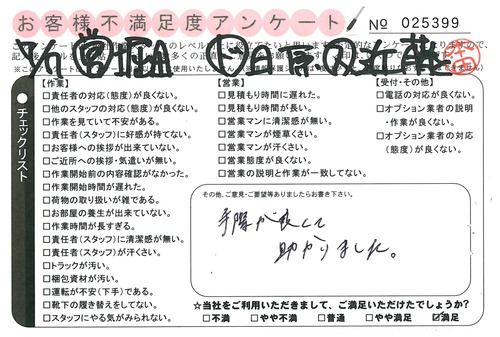 お客様不満足度アンケート
No 025399
チェックリスト
【作業】
□責任者の対応(態度)が良くない。
□他のスタッフの対応(態度)が良くない。
□作業を見ていて不安がある。
□責任者(スタッフ)に好感が持てない。
□お客様への挨拶が出来ていない。
□ご近所への挨拶・気遣いが無い。
□作業開始前の内容確認がなかった。
□作業開始時間が遅れた。
□荷物の取り扱いが雑である。
□お部屋の養生が出来ていない。
□作業時間が長すぎる。
□責任者(スタッフ)に清潔感が無い。
□責任者(スタッフ)が汗くさい。
□トラックが汚い。
□梱包資材が汚い。
□運転が不安(下手)である。
□靴下の履き替えをしてない。
□スタッフにやる気がみられない。
【営業】
□見積もり時間に遅れた。
□見積もり時間が長い。
□営業マンに清潔感が無い。
□営業マンが煙草くさい。
□営業マンが汗くさい。
□営業態度が良くない。
□営業の説明と作業が一致してない。
【受付・その他】
□電話の対応が良くない。
□オプション業者の説明
・作業が良くない。
□オプション業者の対応
(態度)が良くない。
その他、ご意見・ご要望等ありましたらお書き下さい。
手際が良くて
助かりました。
☆当社をご利用いただきまして、ご満足いただけたでしょうか?
□不満 □やや不満 □普通 □やや満足 ☑満足